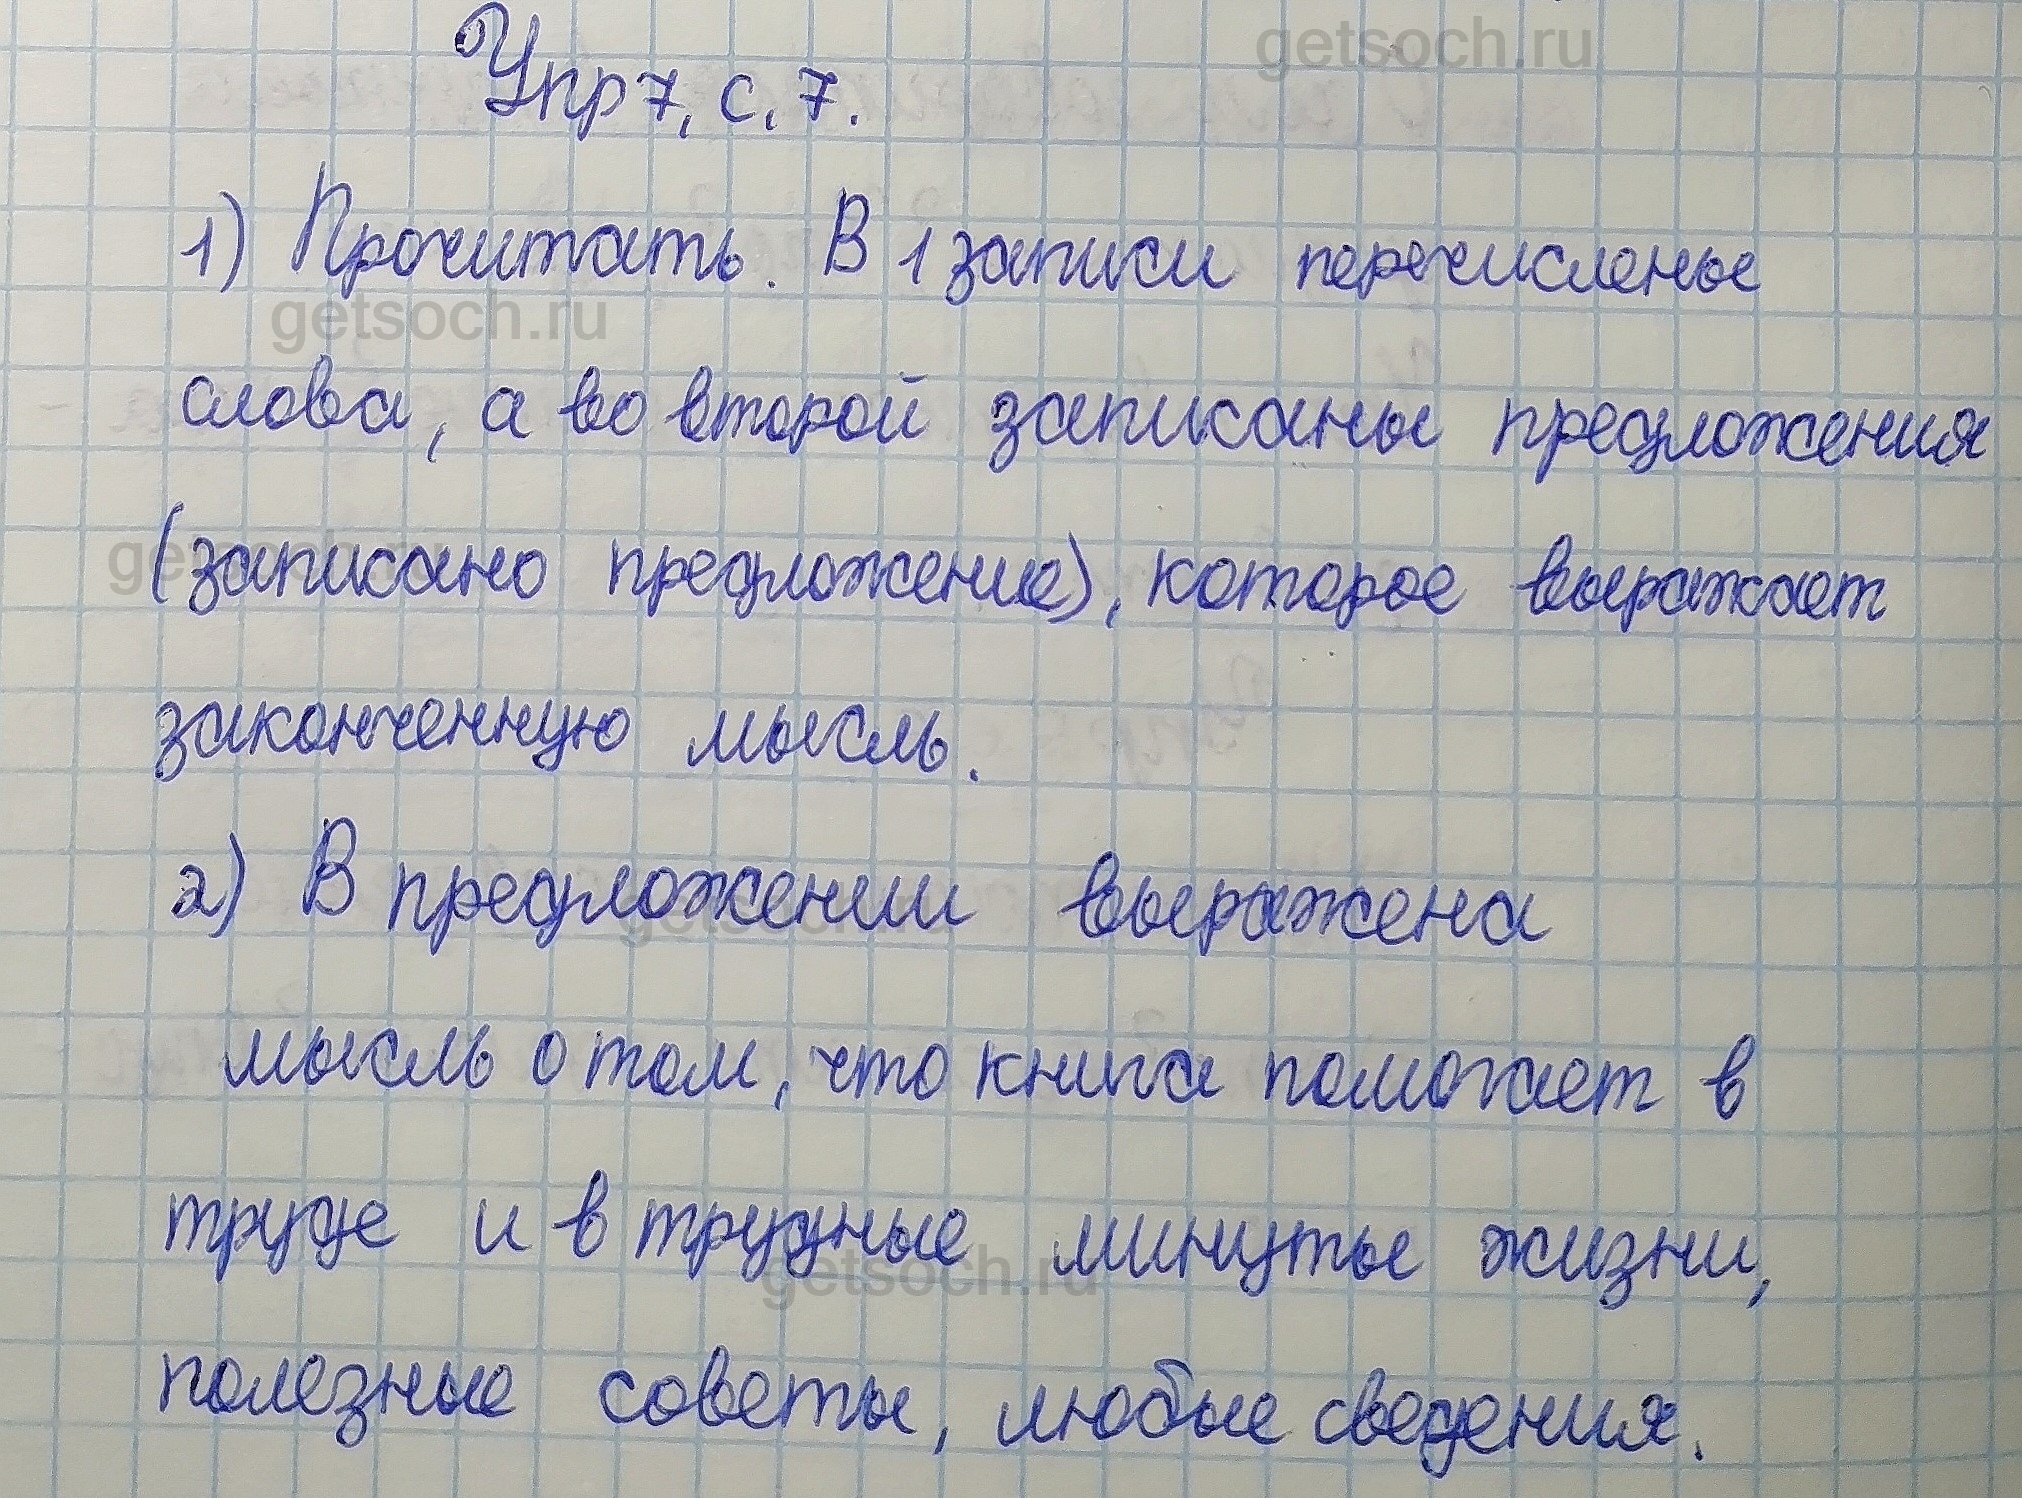 getsoch.ru
Упр 7, с. 7.
1) Прочитать. В 1 записи перечисленые
getsoch.ru
слова, а во второй записаны предложения
getsoch.ru
(записано предложение), которое выражает
законченную мысль.
2) В предложении выражена
getsoch.ru
мысль о том, что книга помогает в
труде и в трудные минуты жизни,
getsoch.ru
полезные советы, любые сведения.